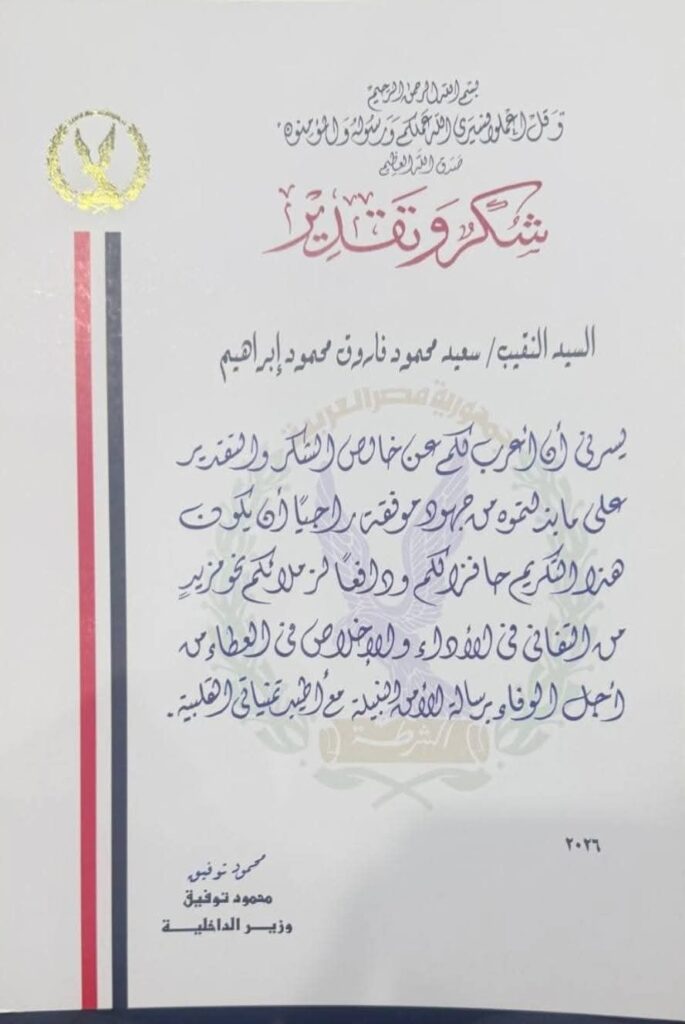 بسم الله الرحمن الرحيم
وَقُلِ اعْمَلُوا فَسَيَرَى اللهُ عَمَلَكُمْ وَرَسُولُهُ وَالْمُؤْمِنُونَ
صدق الله العظيم
شكر وتقدير
السيد النقيب/ سعيد محمود فاروق محمود إبراهيم
جمهورية مصر العربية
يسرنى أن أعرب لكم عن خالص الشكر والتقدير
على ما بذلتموه من جهود موفقة راجيًا أن يكون
هذا التكريم حافزا لكم ودافعًا لزملائكم نحو مزيدٍ
من التفانى فى الأداء والإخلاص فى العطاء من
أجل الوفاء برسالة الأمن النبيلة مع أطيب تمنياتى القلبية.
الشرطة
٢٠٢٦
محمود توفيق
محمود توفيق
وزير الداخلية